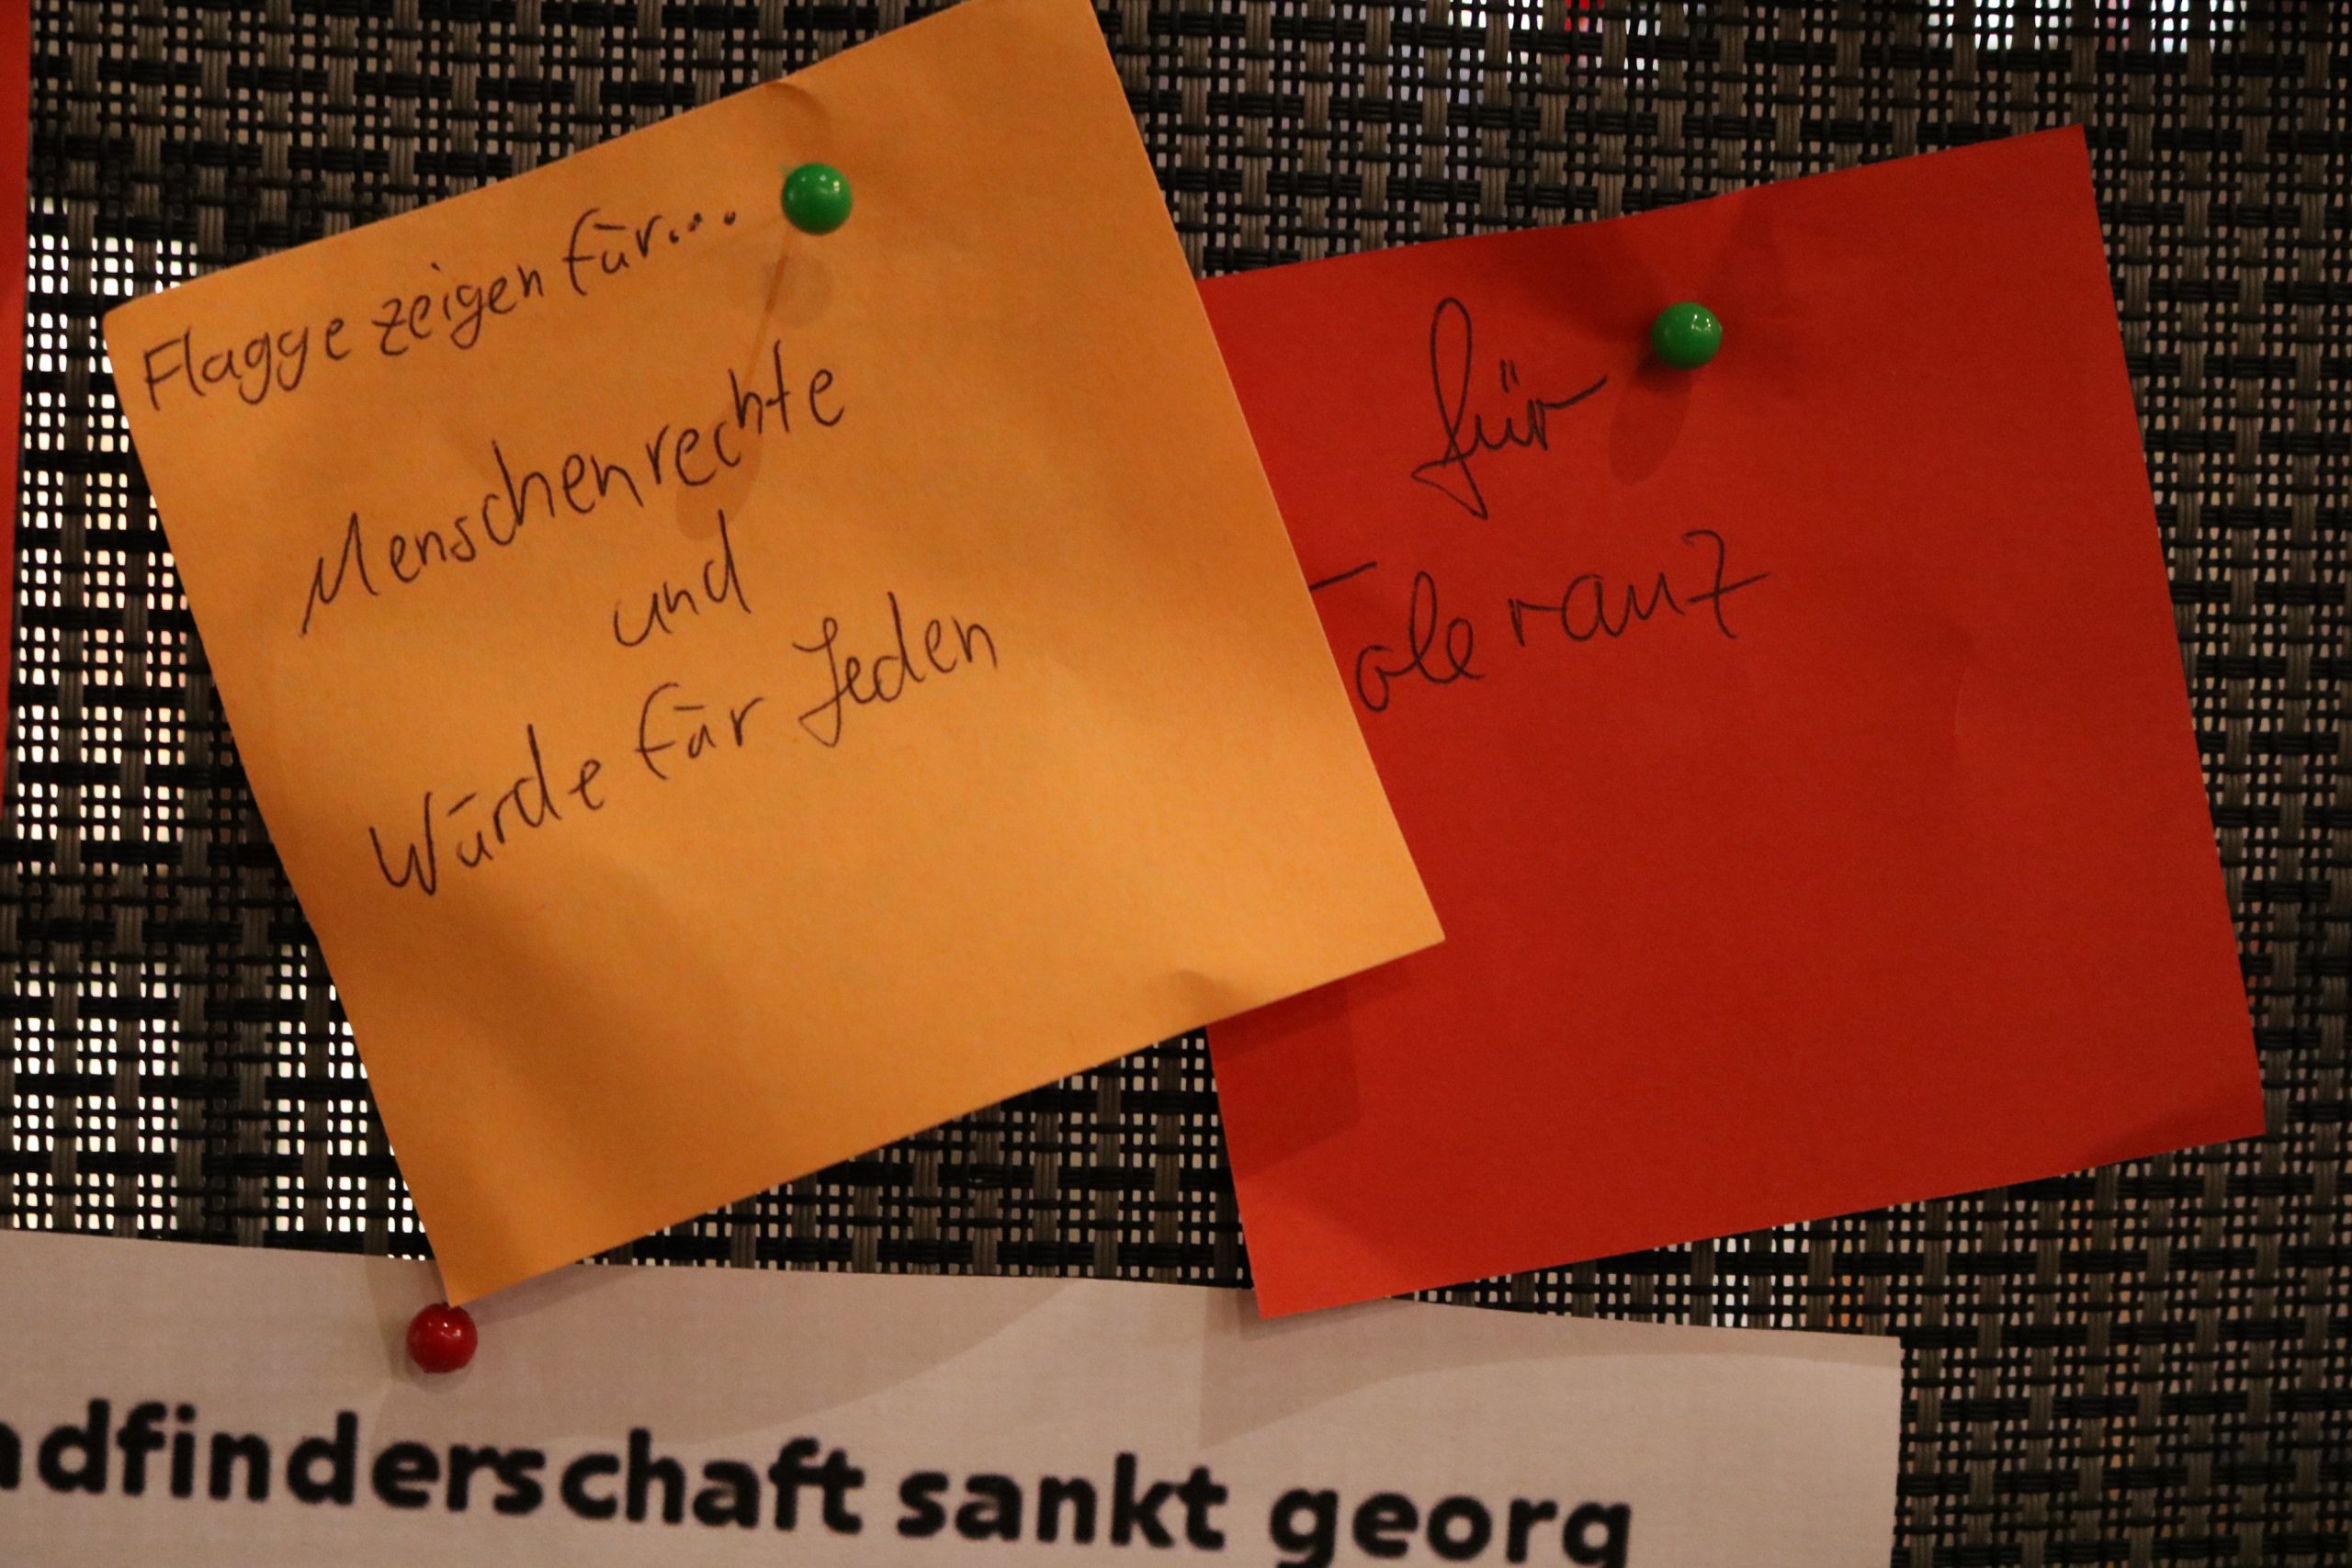 Flagge zeigen für...
Menschenrechte
und
Würde für Jeden
für
Toleranz
adfinderschaft sankt georg